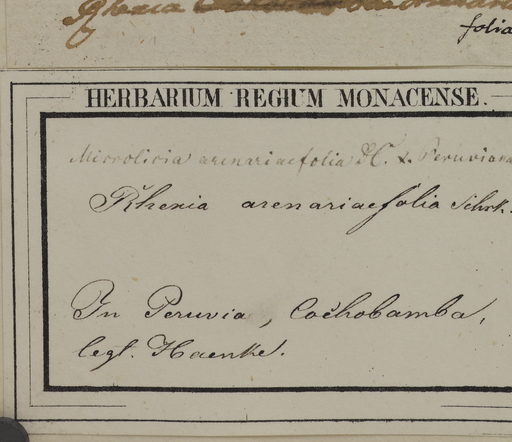 Rhexia
folia
HERBARIUM REGIUM MONACENSE.
Microlicia arenariaefolia DC. α. Peruviana
Rhexia arenariaefolia Schrk.
In Peruvia, Cochobamba,
legt. Haenke.